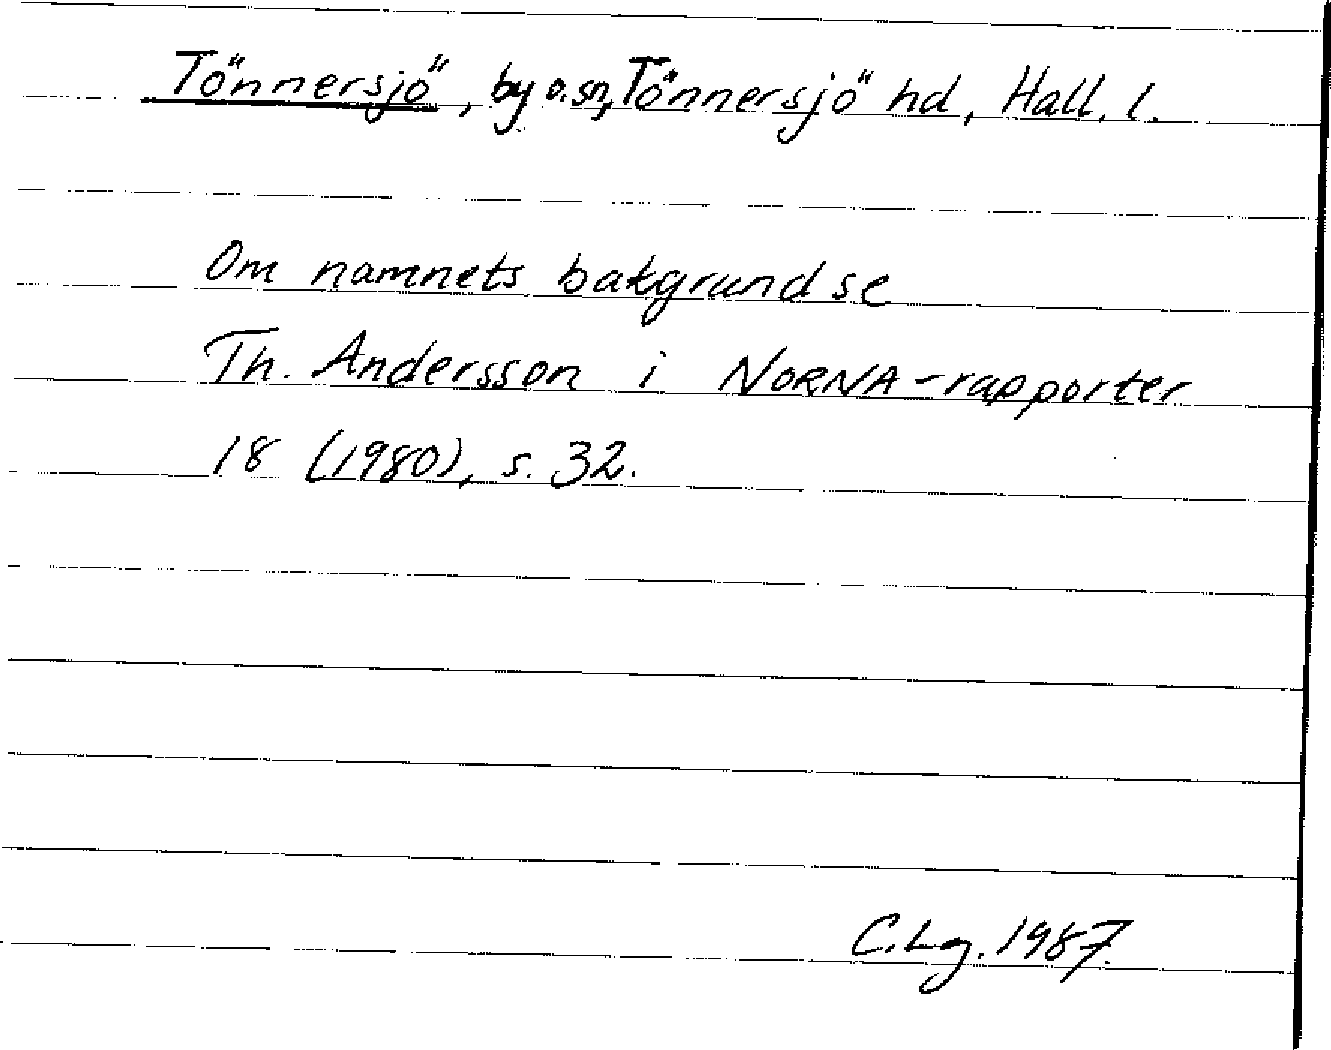 Tönnersjö, by o. sn, Tönnersjö hd, Hall. l.
Om namnets bakgrund se
Th. Andersson i NORNA-rapporter
18 (1980), s. 32.
C. Lg. 1987.